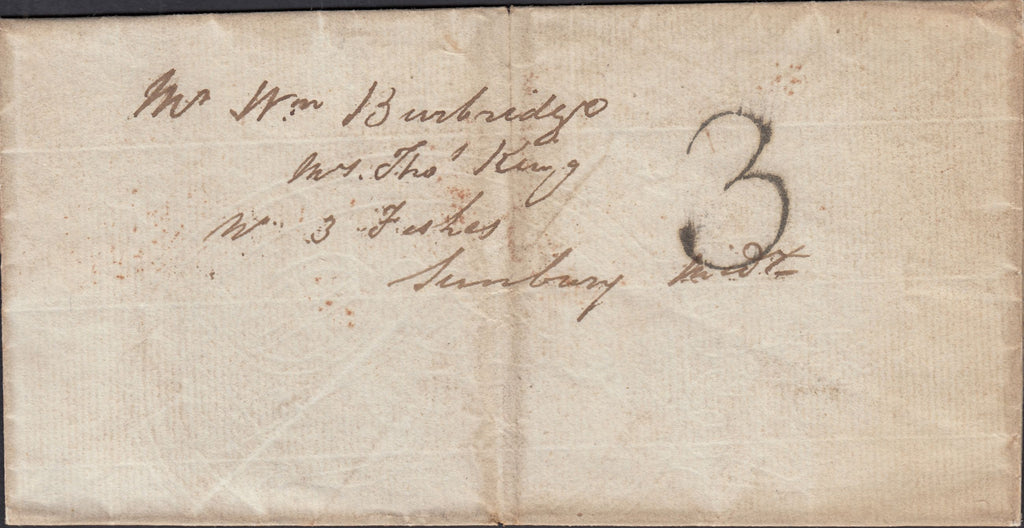 Mr Wm Burbridge
Mr. Thos King
3 Fishes
Sunbury Midx
3